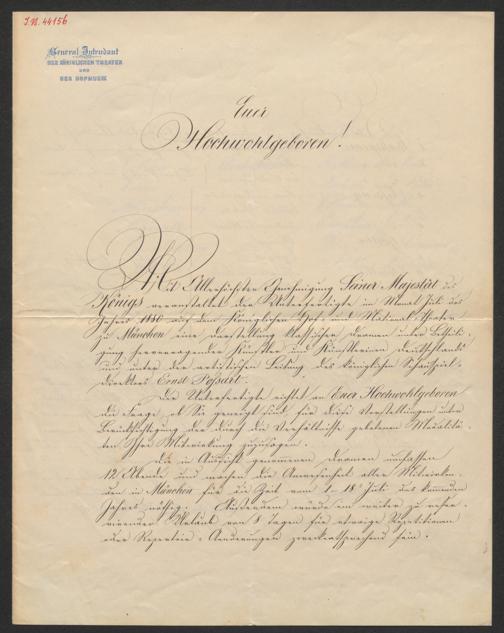 I.N. 44156
General Intendant
DER KÖNIGLICHEN THEATER
UND
DER HOFMUSIK
Euer
Hochwohlgeboren!
Mit Allerhöchster Genehmigung Seiner Majestät des
Königs veranstaltet der Unterfertigte im Monat Juli des
Jahres 1880 auf dem Königlichen Hof- und National-Theater
zu München eine Darstellung klassischer Dramen unter Betheili-
gung hervorragender Künstler und Künstlerinen Deutschlands
und unter der artistischen Leitung des königlichen Schauspiel-
direktors Ernst Possart.
Der Unterfertigte richtet an Euer Hochwohlgeboren
die Frage, ob Sie geneigt sind, für diese Vorstellungen unter
Berücksichtigung der durch die Verhältnisse gebotenen Modalitä-
ten Ihre Mitwirkung zuzusagen.
Die in Aussicht genommenen Dramen umfassen
12 Abende und machen die Anwesenheit aller Mitwirken-
den in München für die Zeit vom 1-18. Juli des kommenden
Jahres nöthig. Außerdem würde ein weiter zu reser-
virender Urlaub von 8 Tagen für etwaige Repetitionen
oder Repertoir-Aenderungen zweckentsprechend sein.